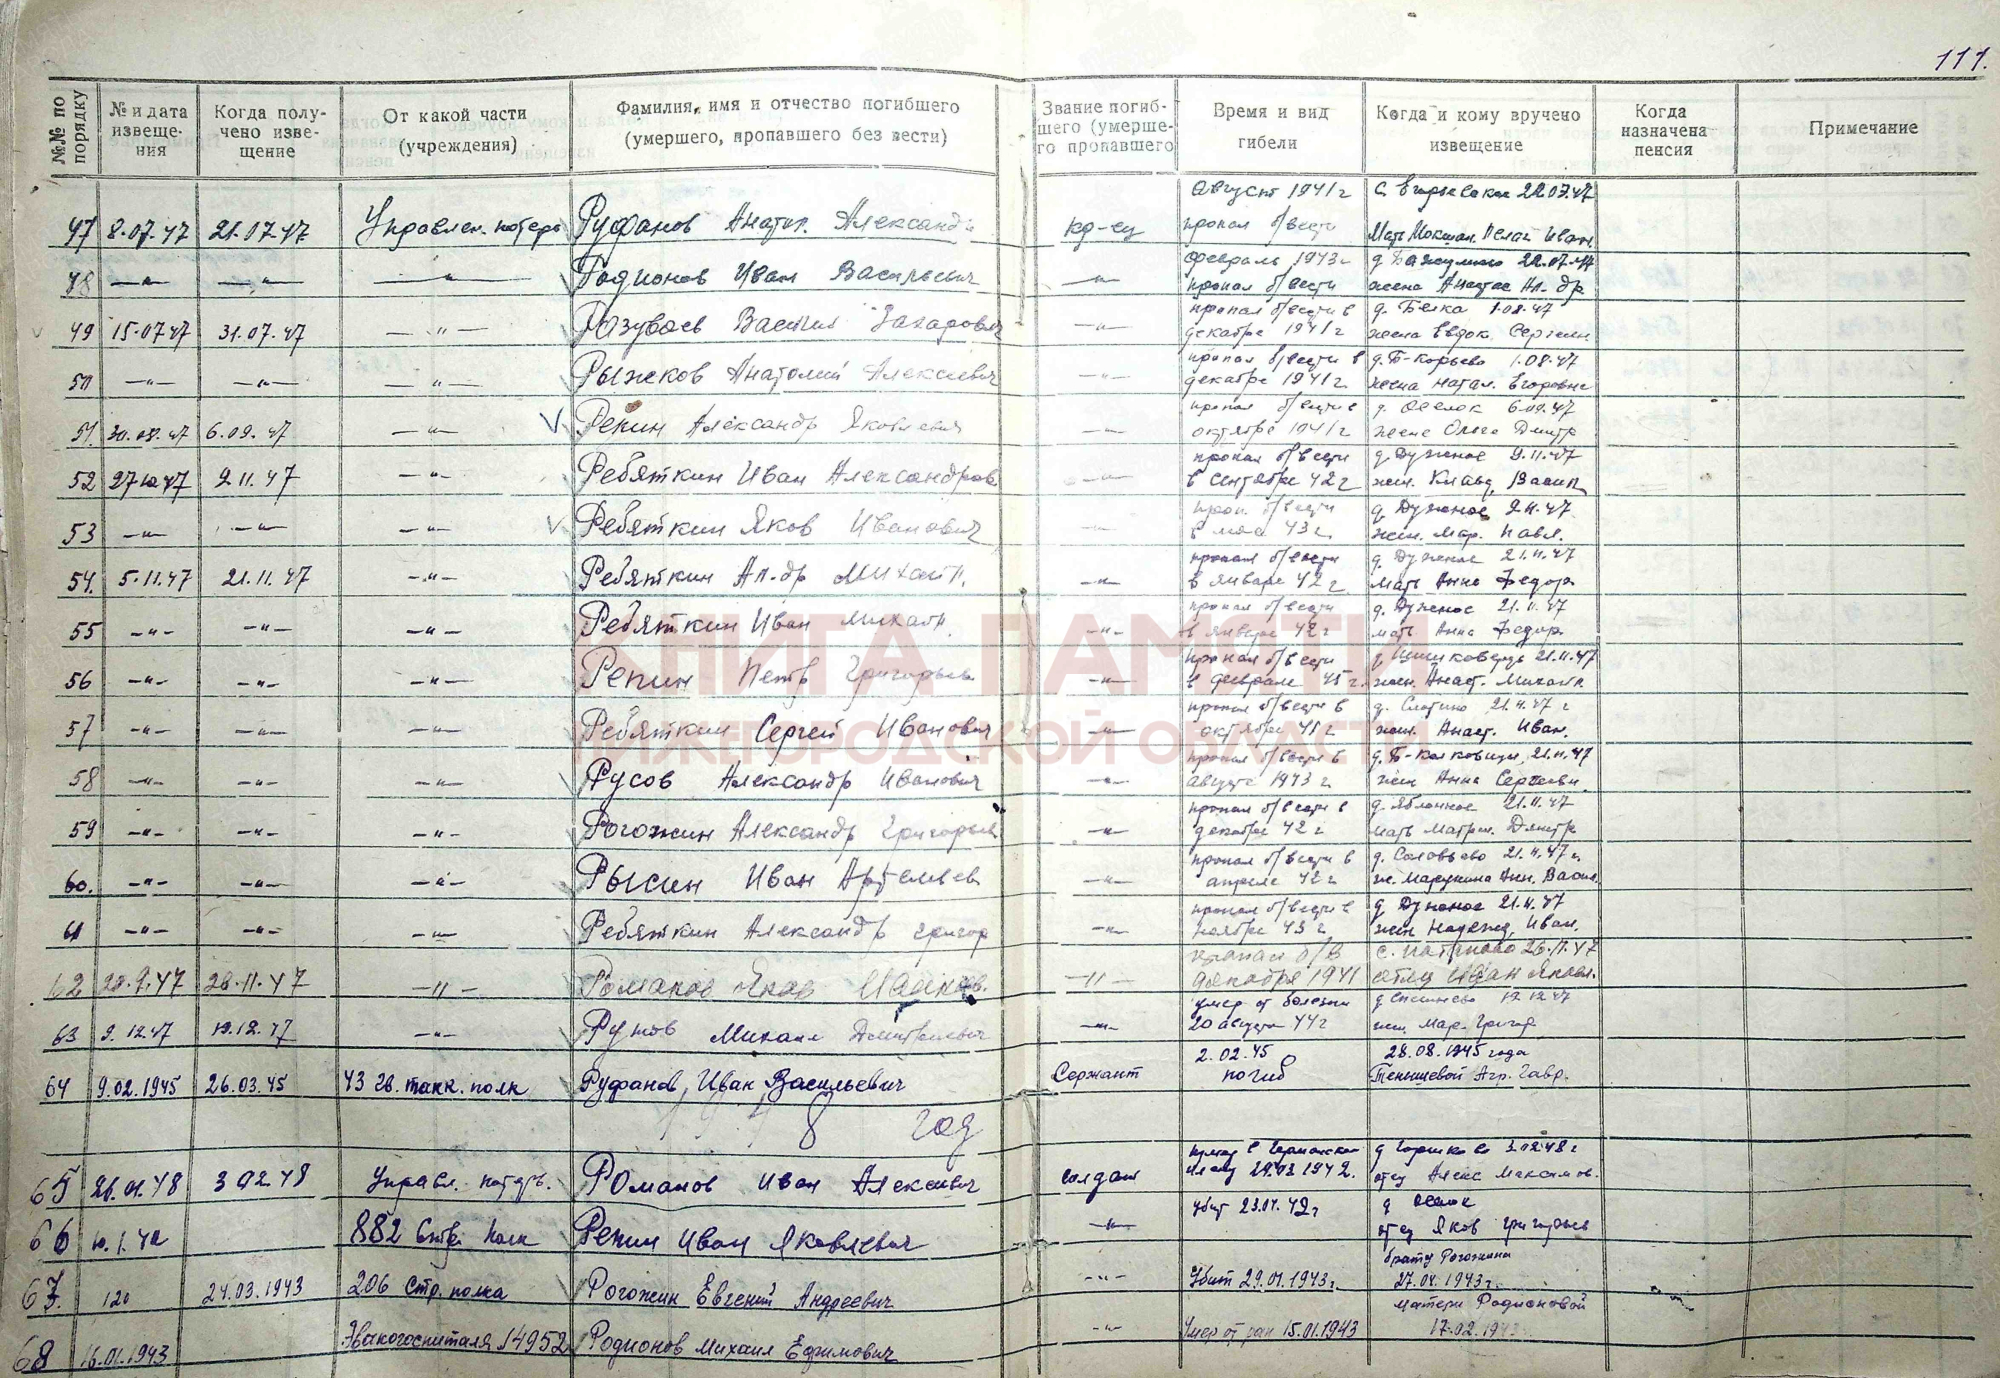 111.
№№ по порядку
№ и дата извеще-ния
Когда полу-чено изве-щение
От какой части (учреждения)
Фамилия, имя и отчество погибшего (умершего, пропавшего без вести)
Звание погиб-шего (умерше-го пропавшего
Время и вид гибели
Когда и кому вручено извещение
Когда назначена пенсия
Примечание
август 1941 г 22.07.47
47 8.07.47 21.07.47 Управлен. потерь Руфанов Анатол. Александ кр-ец пропал б/вести Мать Мокшан. Пелаг Иван.
февраль 1943 г д. 22.07.47
48 —"— —"— —"— Родионов Иван Васильевич —"— пропал б/вести жена Анастас Ал-др
пропал б/вести в д. Белка 1.08.47
49 15.07.47 31.07.47 —"— Разуваев Василий Захарович —"— декабре 1941 г жена Евдок. Сергеевн
пропал б/вести в д. Б-Корьево 1.08.47
50 —"— —"— —"— Рыжков Анатолий Алексеевич —"— декабре 1941 г. жена Натал. Егоровна
пропал б/вести в д. Оселок 6.09.47
51. 30.08.47 6.09.47 —"— V Репин Александр Яковлевич октябре 1941 г жене Ольге Дмитр
пропал б/вести д. Дужное 9.11.47
52 27.10.47 9.11.47 —"— Ребяткин Иван Александров —"— в сентябре 42 г жен. Клавд. Васил.
проп. б/вести д. Дужное 9.11.47
53 —"— —"— —"— V Ребяткин Яков Иванович в мае 43 г. жен. Мар. Павл.
пропал б/вести д. Дужное 21.11.47
54. 5.11.47 21.11.47 —"— Ребяткин Ал-др Михайл. —"— в январе 42 г мать Анна Федор
пропал б/вести д. Дужное 21.11.47
55 —"— —"— —"— Ребяткин Иван Михайл. —"— в январе 42 г мать Анна Федор.
пропал б/вести д. 21.11.47
56 —"— —"— —"— Репин Петр Григорьев —"— в феврале 45 г. жен. Анаст. Михайл
пропал б/вести в д. Слотино 21.11.47 г
57 —"— —"— —"— Ребяткин Сергей Иванович —"— октябре 41 г жен. Анаст. Иван.
пропал б/вести в д. Б- 21.11.47
58 —"— —"— —"— Русов Александр Иванович —"— августе 1943 г жен Анна Сергеевн.
пропал б/вести в д. Яблонное 21.11.47
59 —"— —"— —"— Рогожин Александр Григорьев —"— декабре 42 г мать Матрен. Дмитр
пропал б/вести в д. Соловьево 21.11.47 г.
60. —"— —"— —"— Рысин Иван Артемьев —"— апреле 42 г ж. Анн. Васил.
пропал б/вести в д. Дужное 21.11.47
61 —"— —"— —"— Ребяткин Александр Григор —"— ноябре 43 г жен Надежд. Иван.
пропал б/в с. 26.11.47
62 20.9.47 26.11.47 —"— Романов Яков —"— декабря 1941 отцу Иван Яковл.
умер от болезни д. 12.12.47
63 9.12.47 12.12.47 —"— Рунов Михаил Дмитриевич —"— 20 августа 44 г жен. Мар. Григор
2.02.45 28.08.1945 года
64 9.02.1945 26.03.45 43 гв. танк. полк Руфанов Иван Васильевич Сержант погиб Тенишевой Агр. Гавр.
1948 год
умер в германском д Горшково 3.02.48 г
65 26.01.48 3.02.48 Управл. потерь. Романов Иван Алексеевич солдат плену 29.03.1942. отец Алекс Максимов.
убит 23.01.42 г д Оселок
66 10.1.42 882 Стр. Полк Репин Иван Яковлевич —"— отец Яков Григорьев
брату Рогожина
67. 120 24.03.1943 206 Стр. полка Рогожин Евгений Андреевич —"— Убит 29.01.1943 г. 27.04.1943 г.
матери Родионовой
68 16.01.1943 Эвакогоспиталя 14952 Родионов Михаил Ефимович —"— Умер от ран 15.01.1943 17.02.1943
КНИГА ПАМЯТИ
НИЖЕГОРОДСКОЙ ОБЛАСТИ